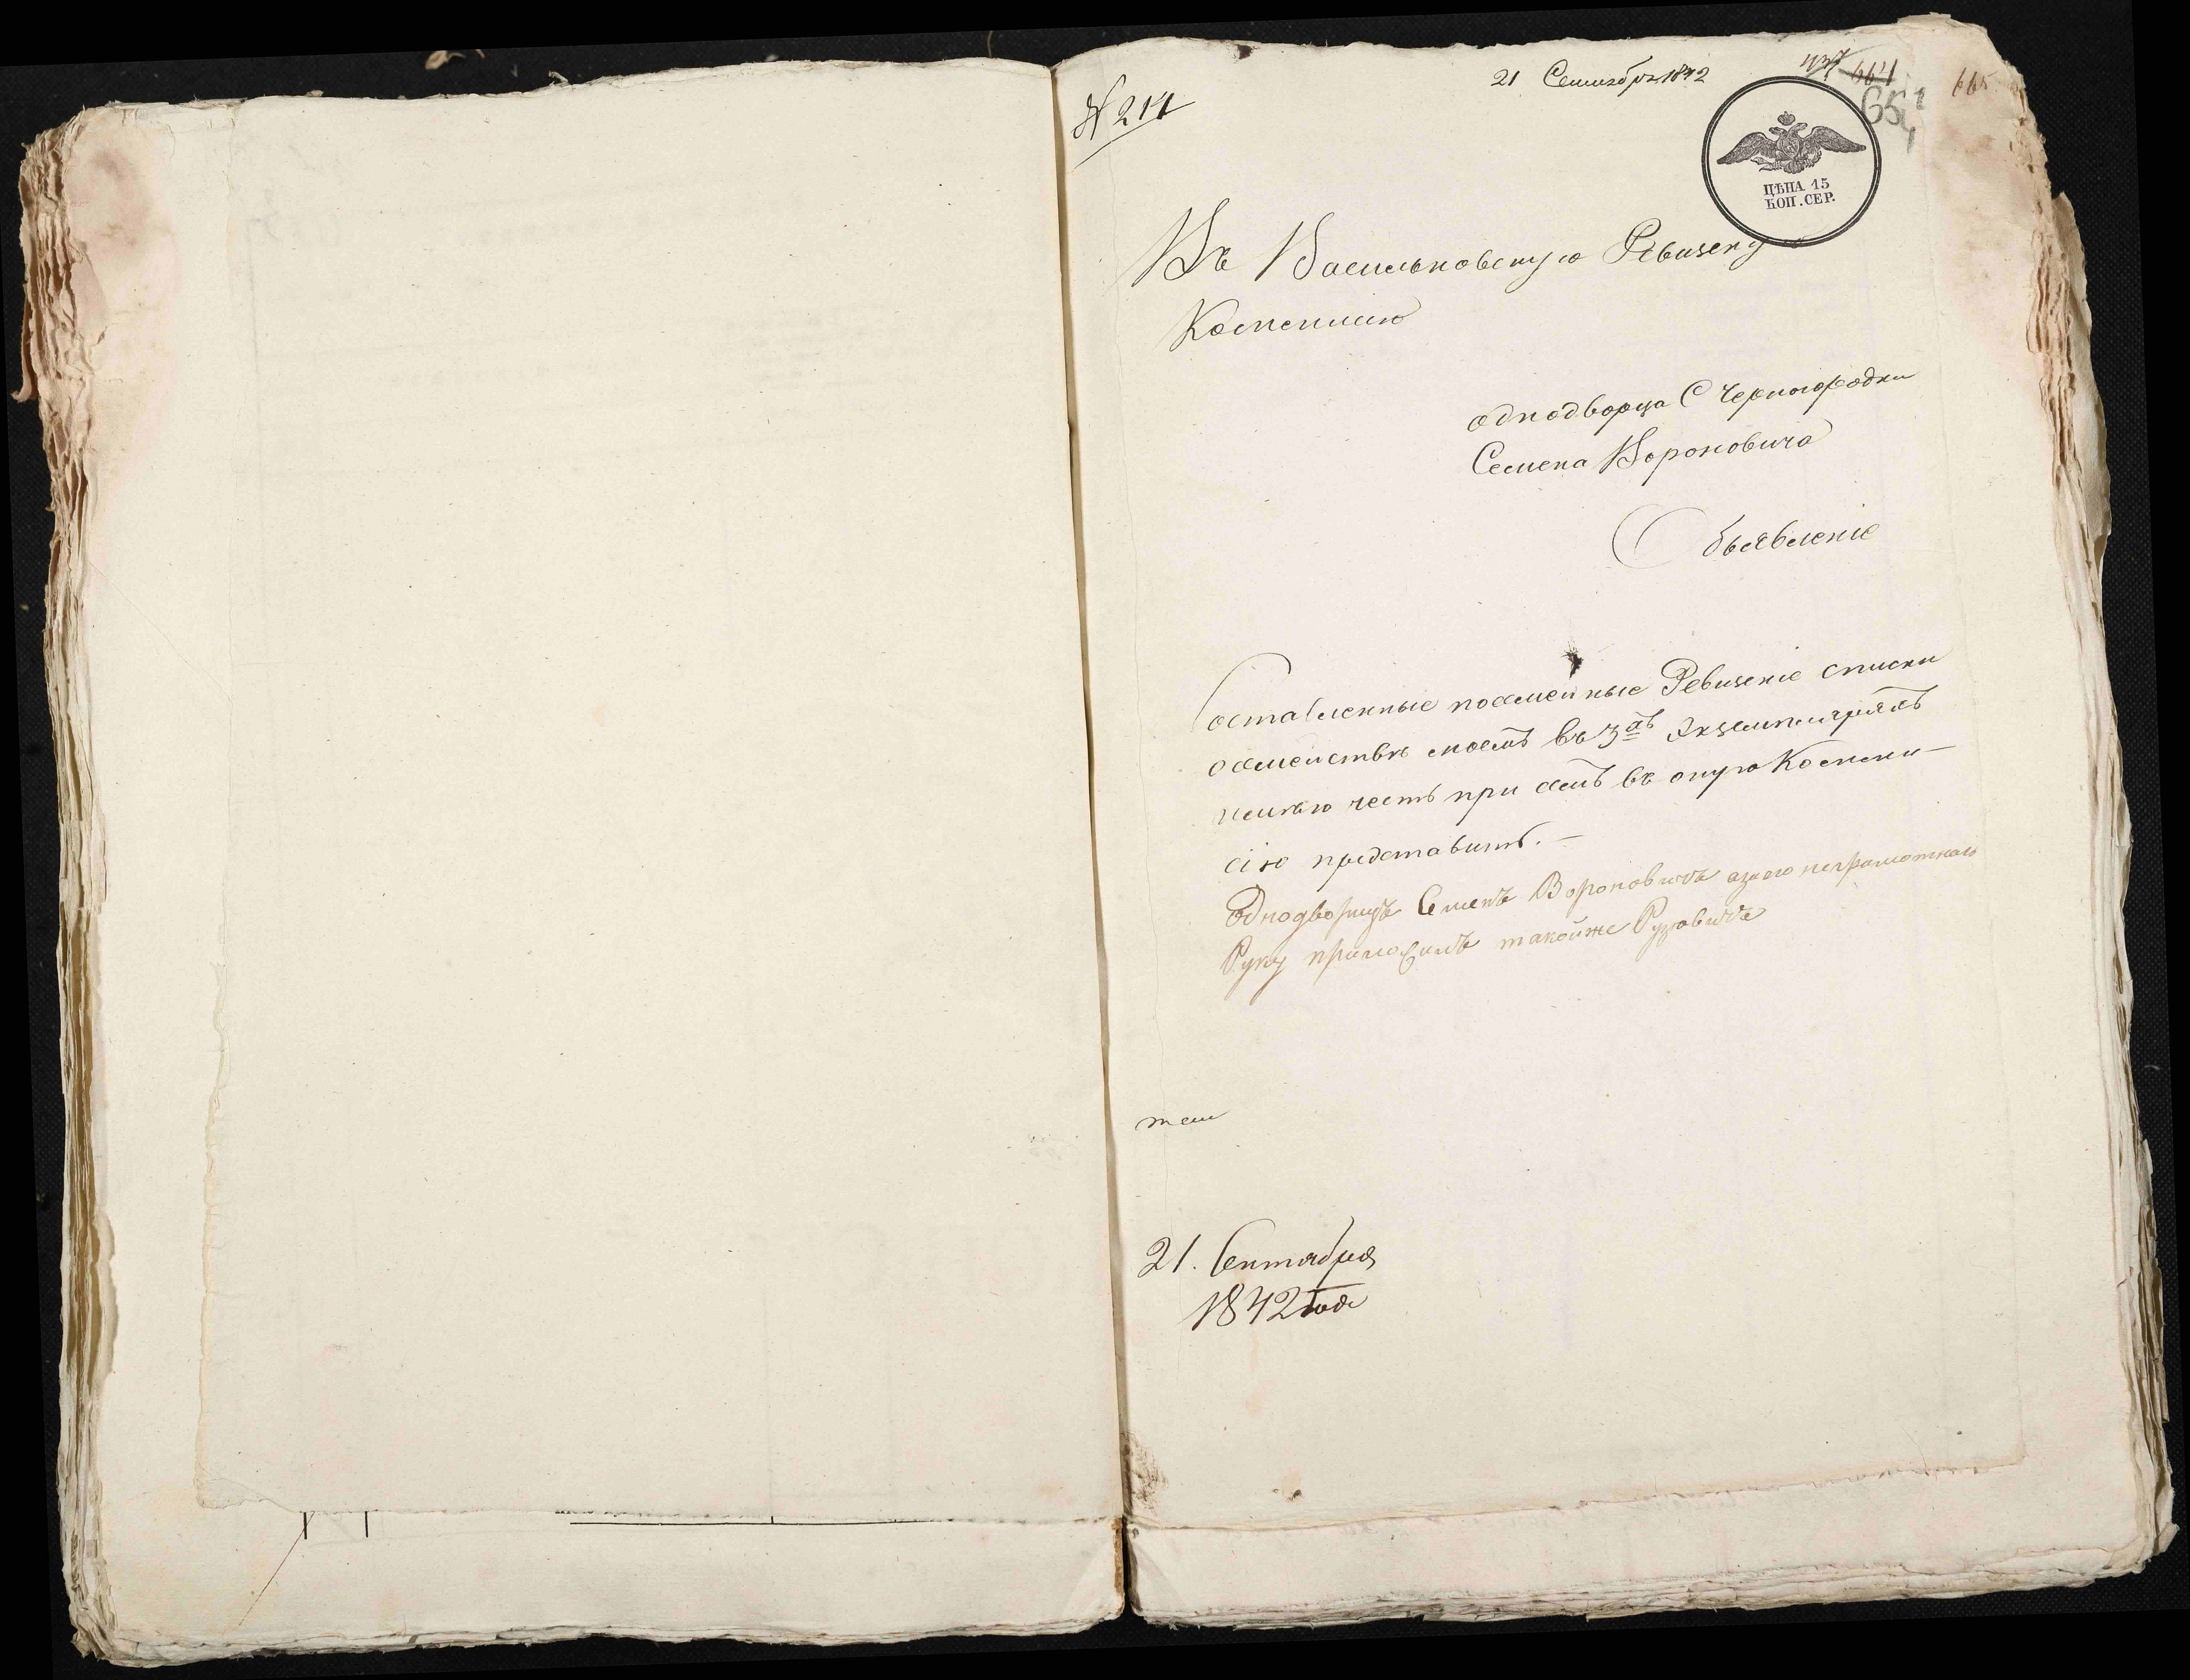 № 214
21 Сентября 1842
664
665
ЦѢНА 15
КОП. СЕР.
Въ Васильковскую Ревизскую
Коммисию
однодворца С Черногородки
Семена Вороновича
Объявленіе
Составленные посемейные Ревизскіе списки
о семействѣ моемъ въ 3хъ Экземплярахъ
имѣю честь при семъ въ оную Коммис-
сію представить. —
Однодворецъ Семенъ Вороновичъ а за его неграмотнаго
Руку приложилъ такойже
21. Сентября
1842 года